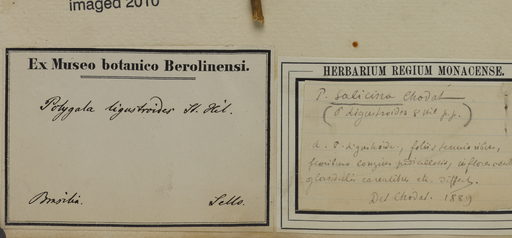 imaged 2010
Ex Museo botanico Berolinensi.
Polygala ligustroides St. Hil.
Brasilia. Sello.
HERBARIUM REGIUM MONACENSE.
P. salicina Chodat
(P. ligustroides S Hil p.p.)
a P. ligustroide, foliis
floribus longius pedicellatis,
glandulis etc. differt.
Det Chodat. 1889